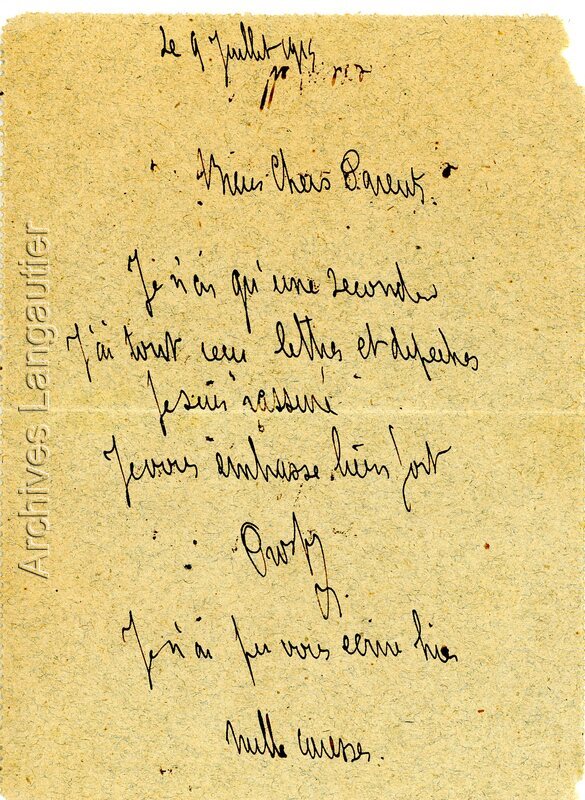 Le 9 Juillet 1915
Biens Chers Parents.
Je n'ai qu'une seconde
J'ai tout reçu lettres et depeches
Je suis rassuré
Je vous embrasse bien fort
Je n'ai pu vous ecrire hier
Mille caresses.
Archives Langautier